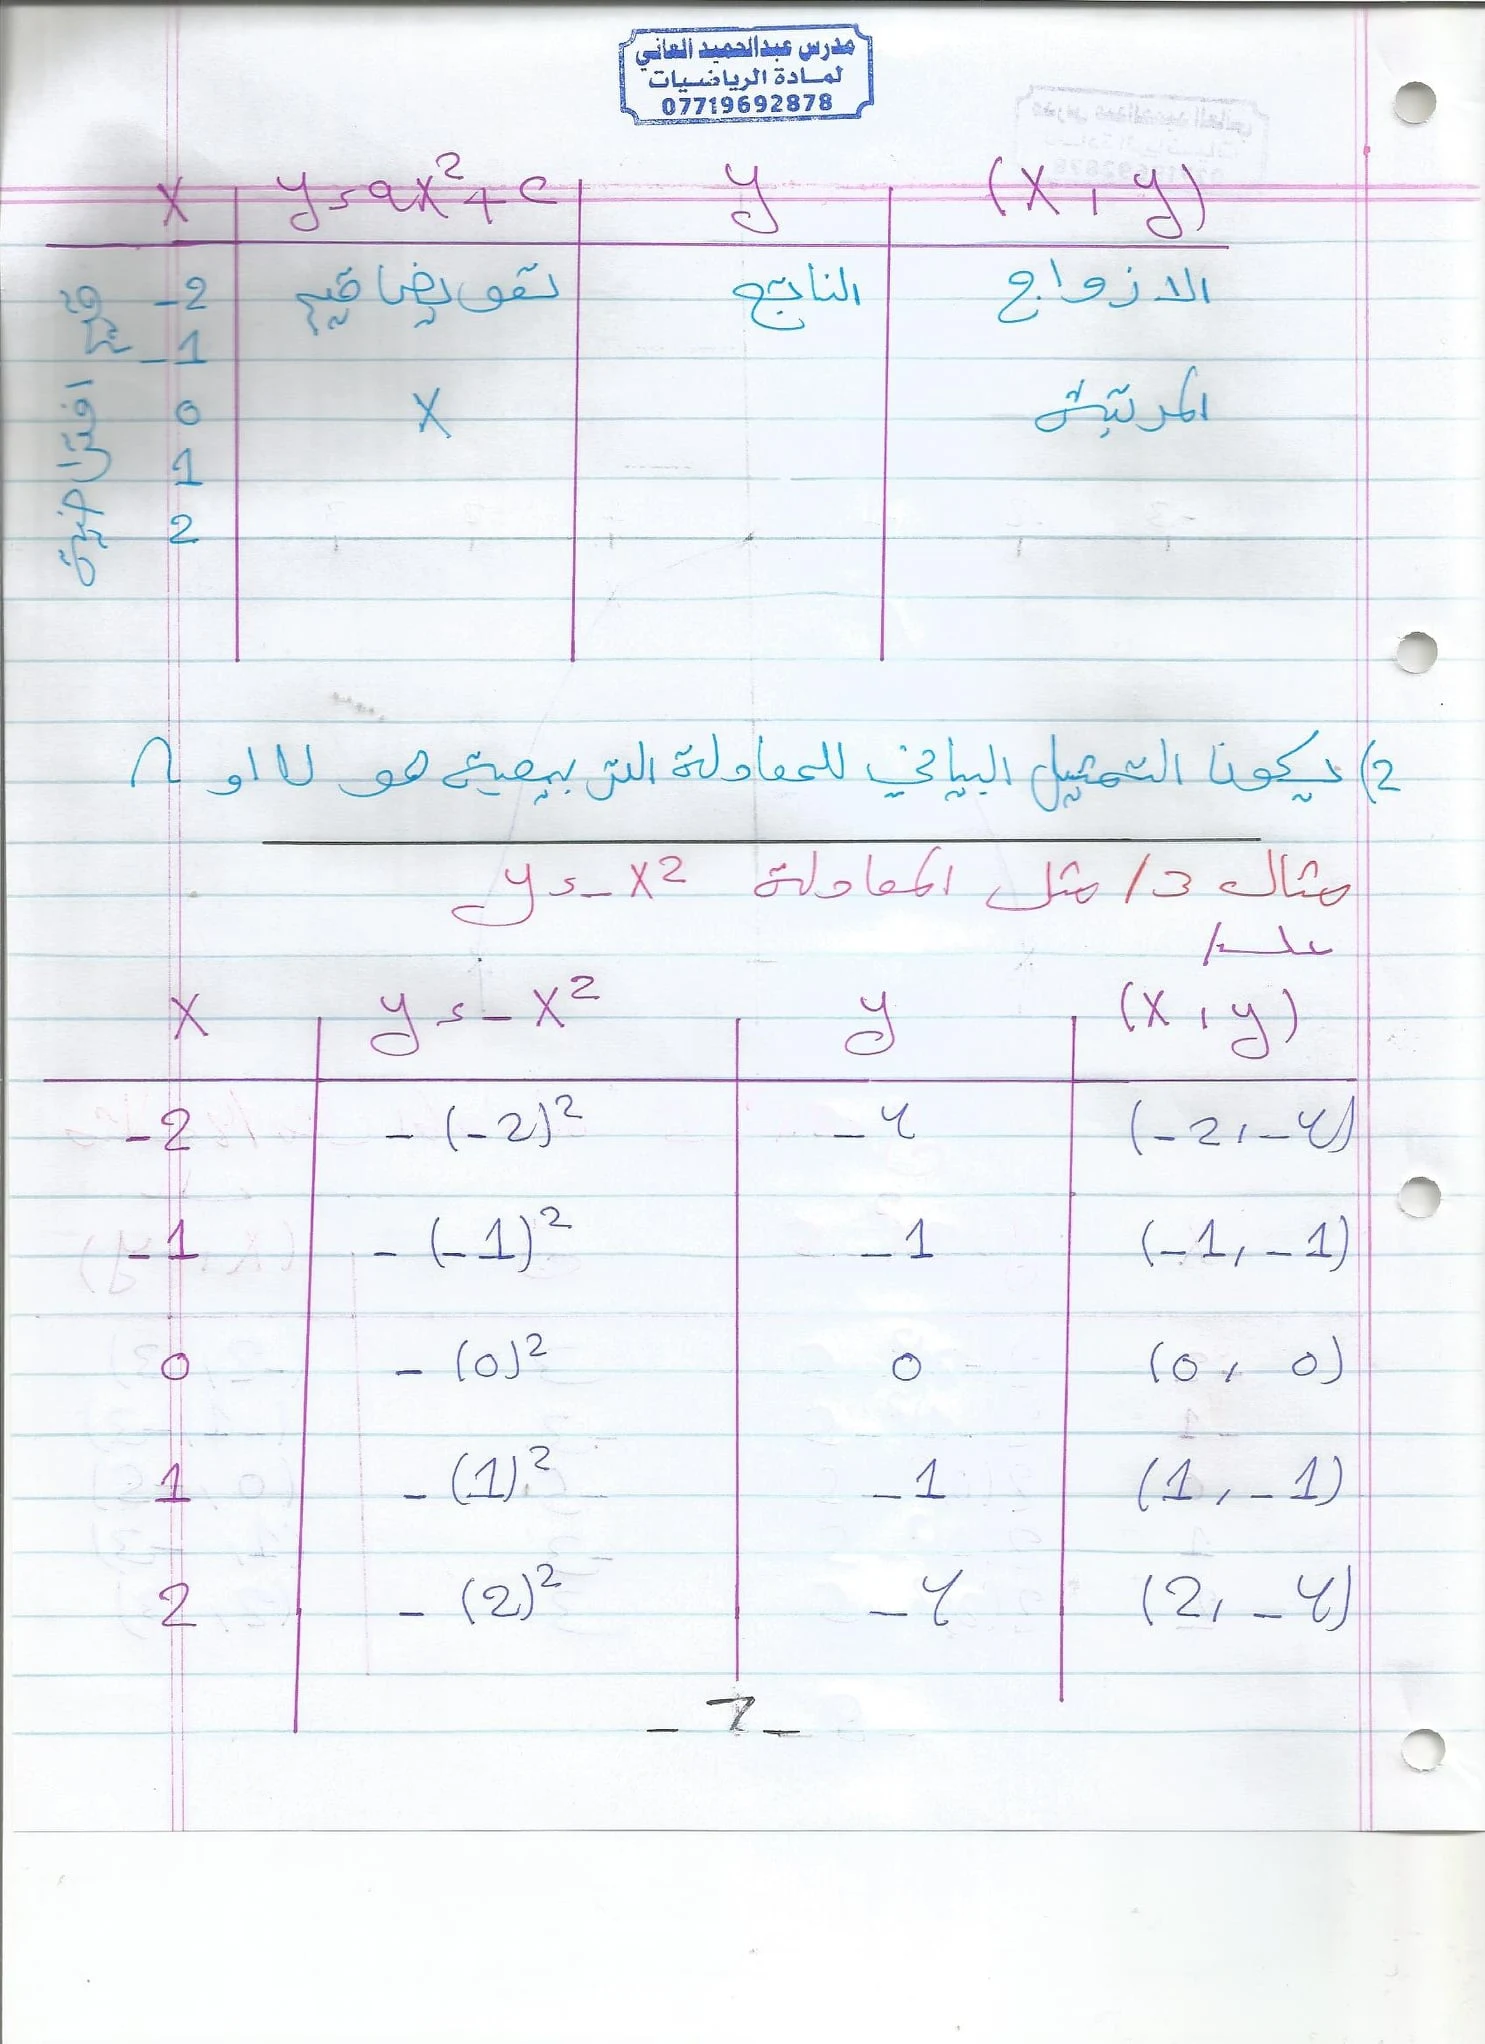 مدرس عبدالحميد العاني
لمادة الرياضيات
07719692878
x | y = ax² + c | y | (x , y)
-2 | تعويض قيم | الناتج | الازواج
-1
0 | x | | المرتبة
1
2
قيم افتراضية
2) يكون التمثيل البياني للمعادلة التربيعية هو U او ∩
مثال 3/ مثل المعادلة y = -x²
الحل/
x | y = -x² | y | (x , y)
-2 | -(-2)² | -4 | (-2, -4)
-1 | -(-1)² | -1 | (-1, -1)
0 | -(0)² | 0 | (0, 0)
1 | -(1)² | -1 | (1, -1)
2 | -(2)² | -4 | (2, -4)
-7-